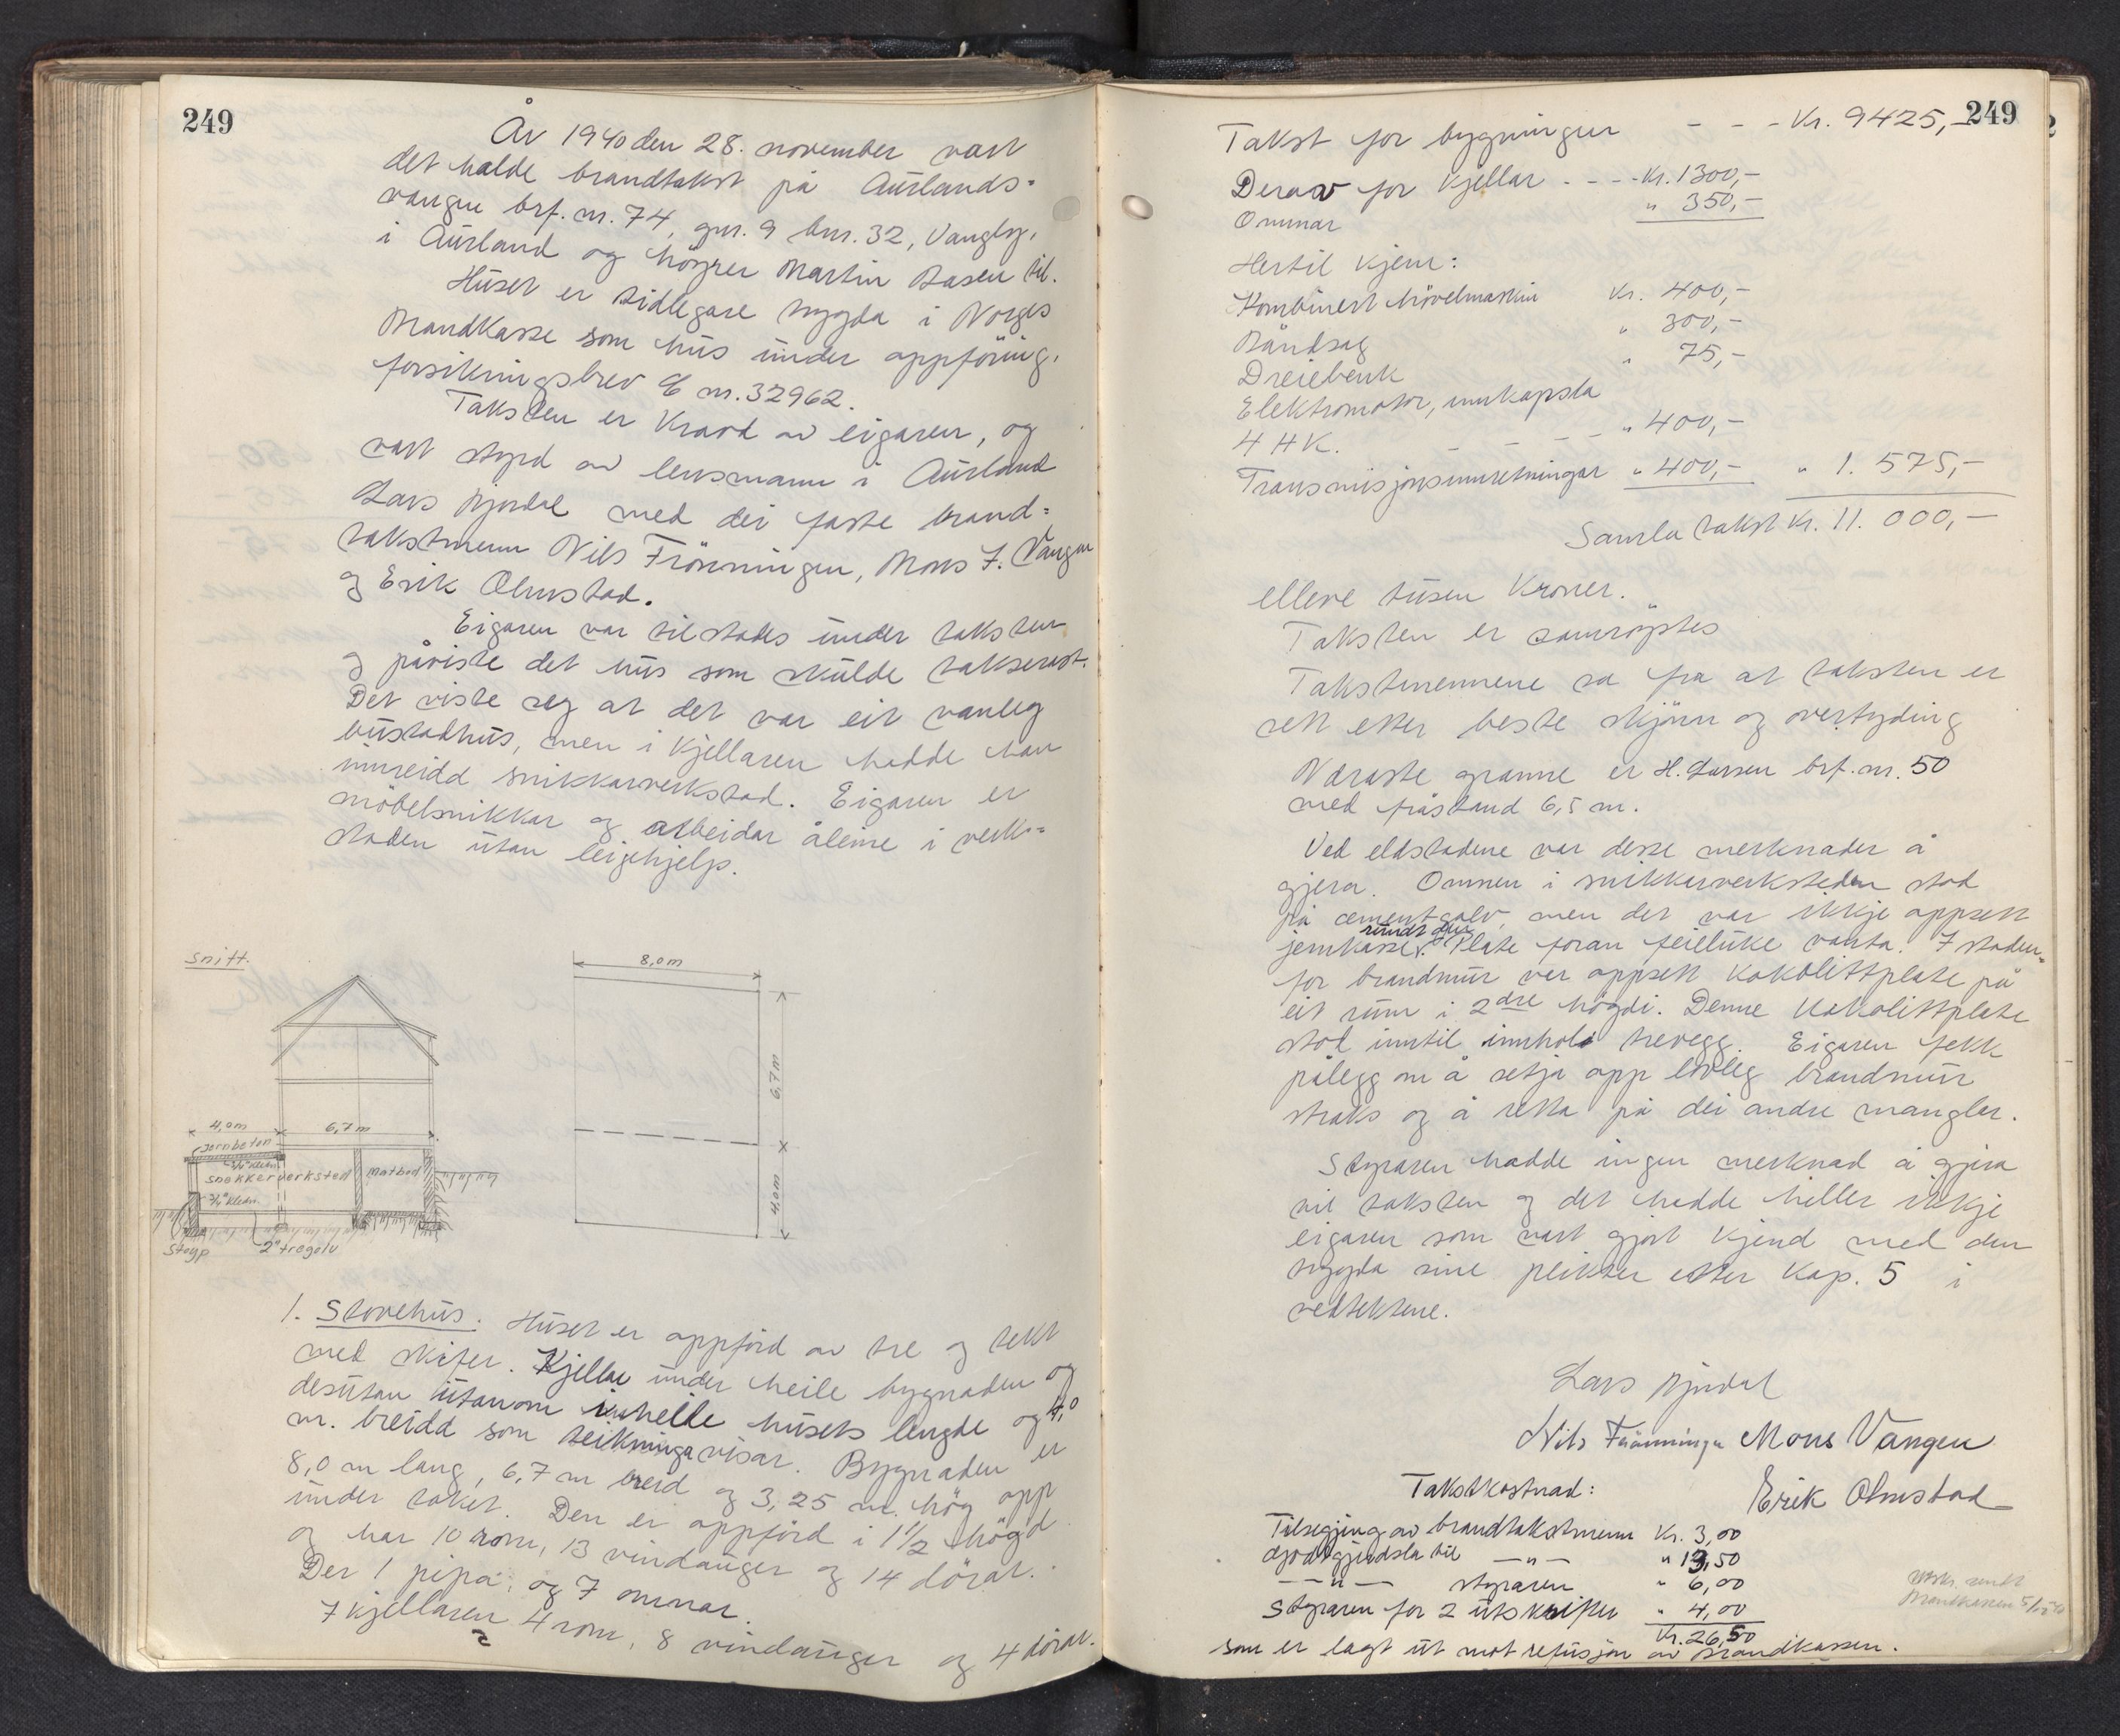 249
År 1940 den 28. november vart
det halde brandtakst på Aurlands-
vangen brf. nr. 74, gnr. 9 bnr. 32, Vangbg.
i Aurland og höyrer Martin Lasen til.
Huset er tidlegare trygda i Norges
Brandkasse som hus under oppföring,
forsikringsbrev E nr. 32962.
Taksten er kravd av eigaren, og
vart styrd av lensmann i Aurland
Lars Bjørdal med dei faste brand-
takstmenn Nils Frönningen, Mons J. Vangen
og Erik Olmstad.
Eigaren var tilstades under taksten
og påviste det hus som skulde takserast.
Det viste seg at det var eit vanleg
bustadhus, men i kjellaren hadde han
innreidd snikkarverkstad. Eigaren er
möbelsnikkar og arbeidar åleine i verk-
staden utan leigehjelp.
Snitt.
8,0 m
6,7 m
4,0 m
4,0 m
6,7 m
Jernbeton
3/4" kledn.
snekkerverksted
matbod
3/4" kledn.
Støyp
2" tregolv
1. Stovehus. Huset er oppförd av tre og tekt
med skifer. Kjellar under heile bygnaden og
desutan utanom i heile husets lengde og 4,0
m. breidd som teikninga visar. Bygnaden er
8,0 m lang, 6,7 m breid og 3,25 m. hög opp
under taket. Den er oppförd i 1 1/2 högd
og har 10 rom, 13 vindauger og 14 dörar.
Der 1 pipa, og 7 omnar.
I kjellaren 4 rom, 8 vindauger og 4 dörar.
249
Takst for bygningen - - - Kr. 9425,-
Derav for kjellar - - - Kr. 1300,-
Omnar " 350,-
Hertil kjem:
Kombinert hövelmaskin Kr. 400,-
Båndsag " 300,-
Dreiebenk " 75,-
Elektromotor, innkapsla
4 HK. - - - " 400,-
Transmisjonsinnretningar " 400,- " 1. 575,-
Samla takst Kr. 11. 000,-
elleve tusen kroner.
Taksten er samröystes
Takstmennene sa fra at taksten er
sett etter beste skjönn og overtyding
Næraste granne er H. Larsen brf. nr. 50
med fråstand 6,5 m.
Ved eldstadene var desse merknader å
gjera. Omnen i snikkarverksteden stod
på cementgolv, men det var ikkje oppsett
rundt den
jernkasse. Plate foran feieluke vanta. I staden-
for brandmur var oppsett Kokolittplate på
eit rum i 2dre högdi. Denne Kokolittplate
stod inntil innhold trevegg. Eigaren fekk
pålegg om å setja opp lovleg brandmur
straks og å retta på dei andre manglar.
Styraren hadde ingen merknad å gjera
til taksten og det hadde heller ikkje
eigaren som vart gjort kjend med den
trygda sine plikter etter Kap. 5 i
vedtektene.
Lars Bjørdal
Nils Frönningen Mons Vangen
Erik Olmstad
Takstkostnad:
Tilsegjing av brandtakstmenn Kr. 3,00
Godtgjerdsla til —"— " 13,50
—"— styraren " 6,00
Styraren for 2 utskrifter " 4,00
Kr. 26,50
som er lagt ut mot refusjon av Brandkassen.
Utskr. sendt
Brandkassen